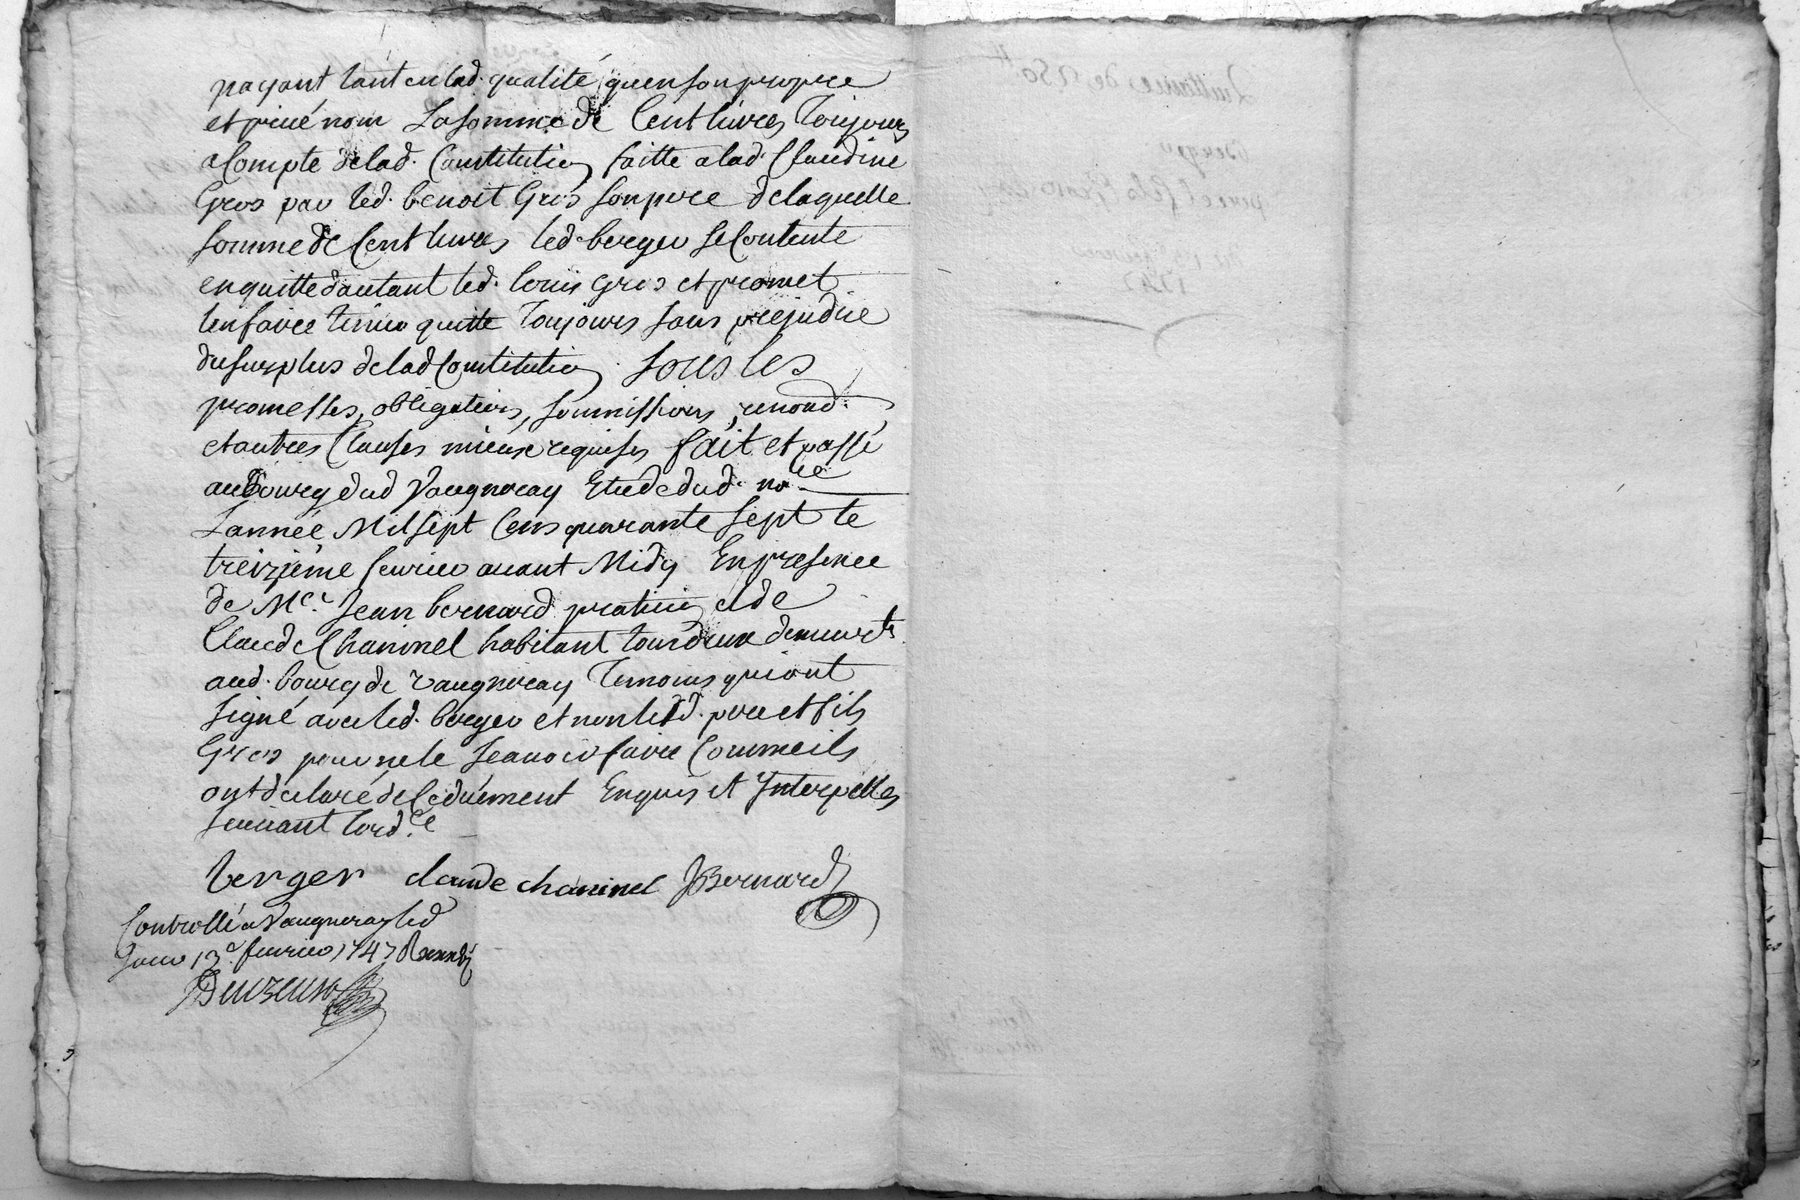 payant tant en lad. qualité qu'en son propre
et privé nom La somme de Cent livres Toujours
a Compte de lad. Constitution faitte a lad. Claudine
Gros par led. benoit Gros son pere de laquelle
somme de Cent livres led. berger se Contente
en quitte d'autant led. louis Gros et promet
l'en faire tenir quitte Toujours sans prejudice
du surplus de lad Constitution sous les
promesses, obligations, soumissions, renond.
et autres Clauses mieux requises fait et passé
au Bourg dud Vaugneray Etude dud. no.re
L'année Mil sept Cens quarante sept le
treizieme fevrier avant Midy En presence
de Me. Jean bernard praticien et de
Claude Chaninel habitant tous deux demeurts
aud. bourg de Vaugneray Temoins qui ont
signé avec led. berger et non lesd. pere et fils
Gros pour ne le scavoir faire Comme ils
ont declaré de Ce duement Enquis et Interpellés
suivant l'ord.ce
berger claude chaninel JBernard
Controllé a Vaugneray led
Jour 13e. fevrier 1747
Quittance de
berger
1747